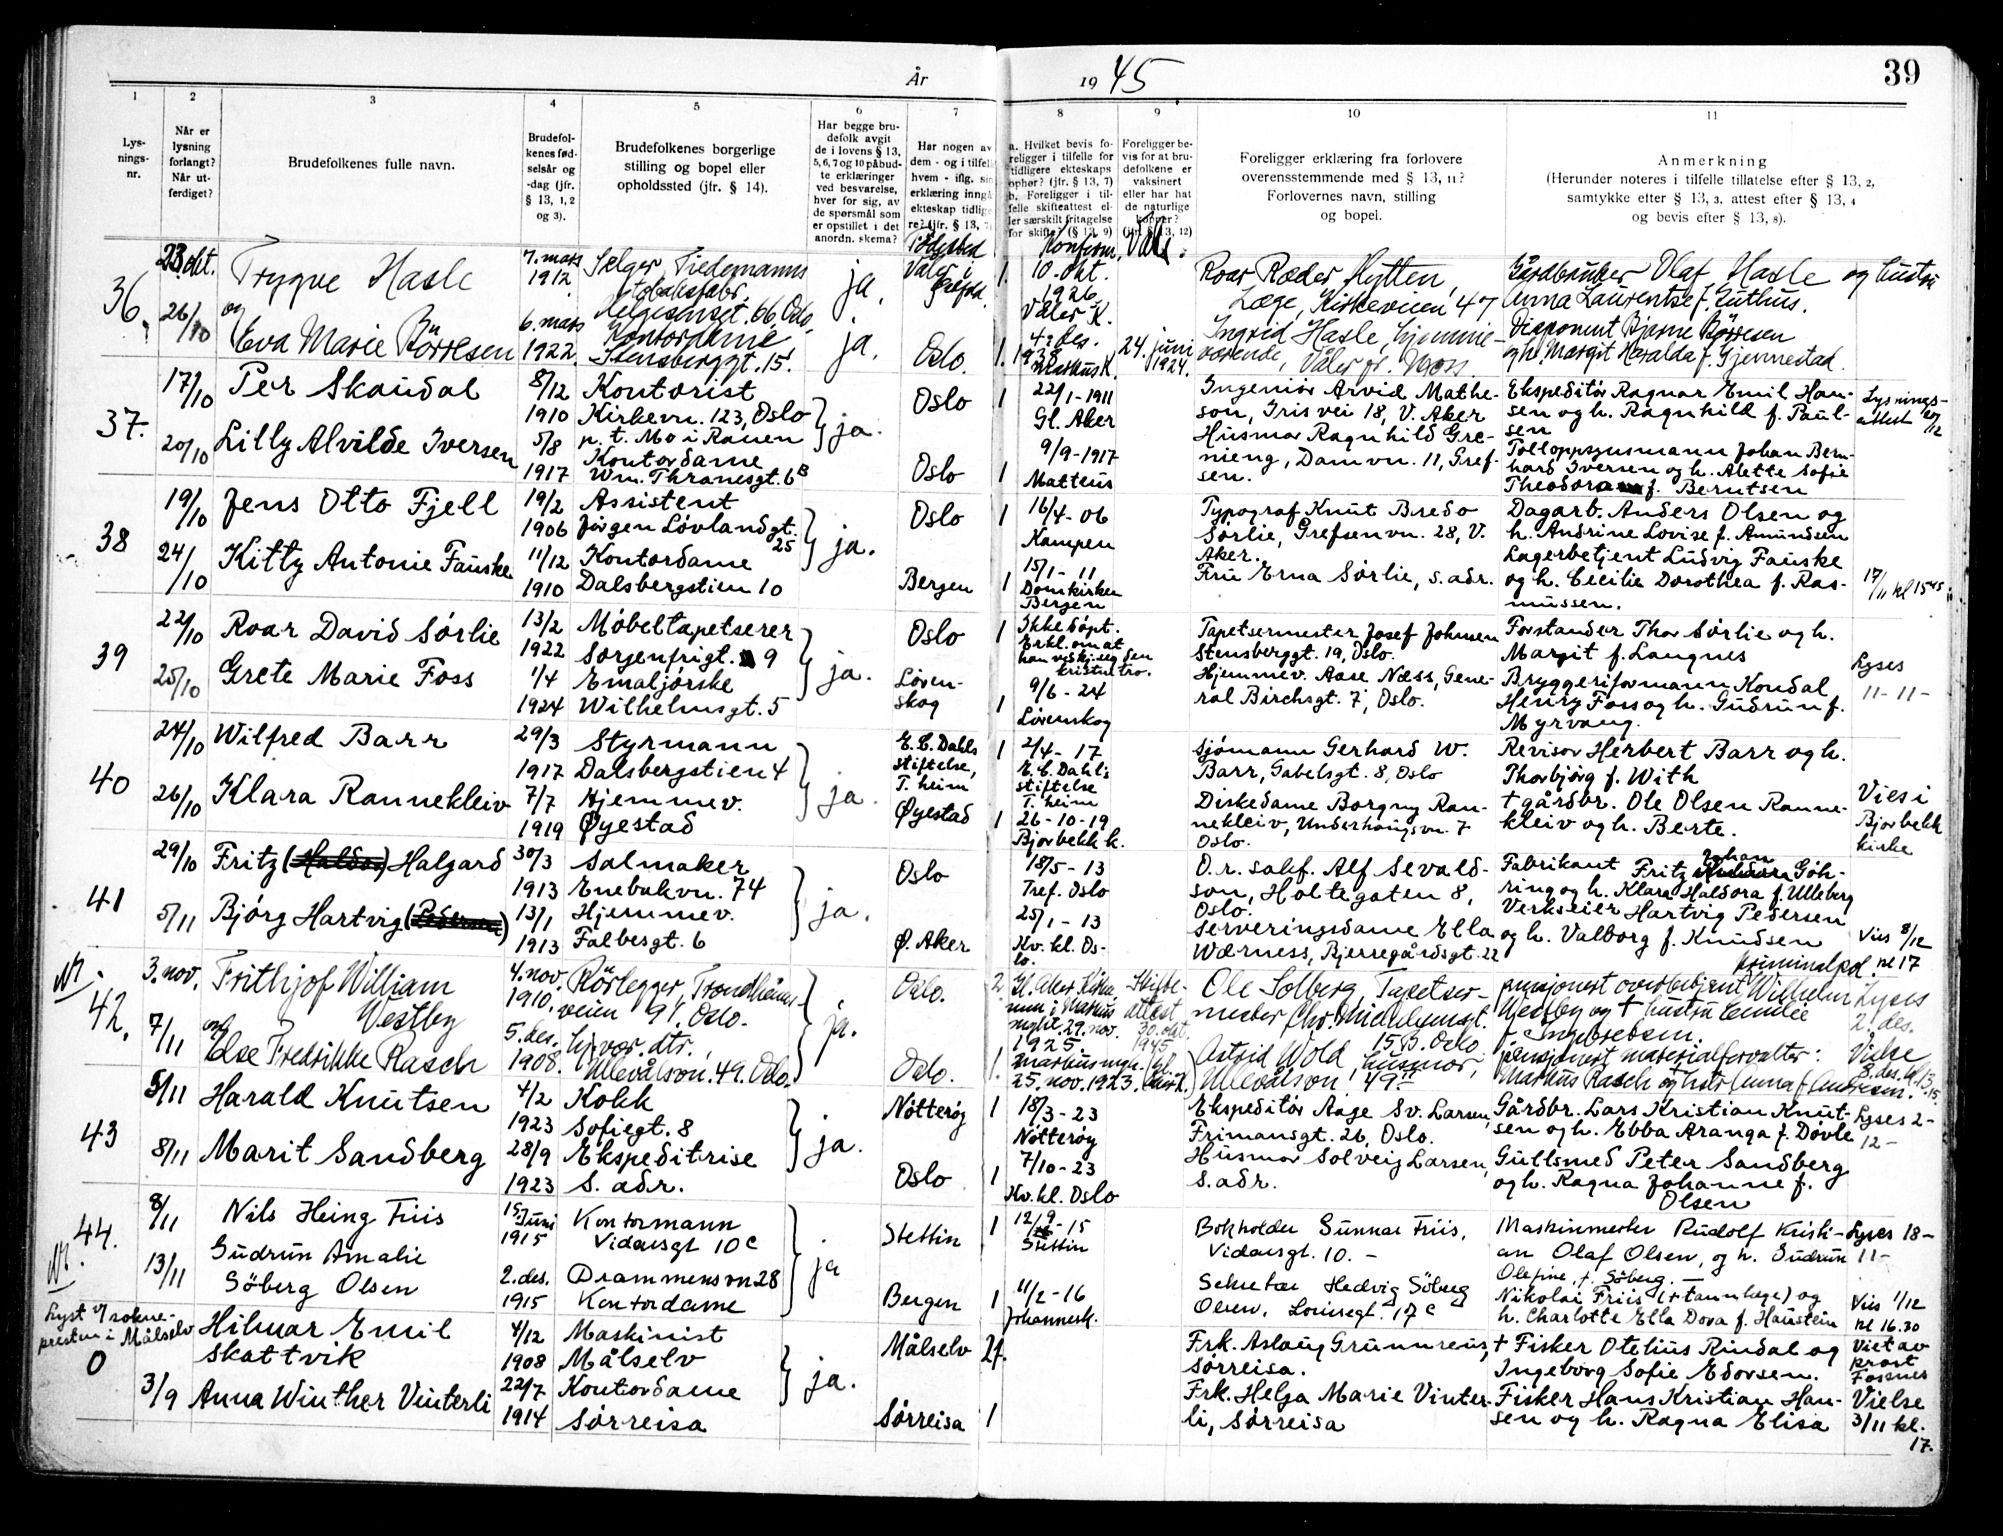 År 1945
39
1
2
3
4
5
6
7
8
9
10
11
Lys-
nings-
nr.
Når er
lysning
forlangt?
Når ut-
ferdiget?
Brudefolkenes fulle navn.
Brudefol-
kenes fød-
selsår og
-dag (jfr.
§ 13, 1, 2
og 3).
Brudefolkenes borgerlige
stilling og bopel eller
opholdssted (jfr. § 14).
Har begge bru-
defolk avgit
de i lovens § 13,
5, 6, 7 og 10 påbud-
te erklæringer
ved besvarelse,
hver for sig, av
de spørsmål som
er opstillet i det
anordn. skema?
Har nogen av
dem - og i tilfelle
hvem - iflg. sin
erklæring inngå
ekteskap tidlige
re? (jfr. § 13, 7)
a. Hvilket bevis fo-
religger i tilfelle for
tidligere ekteskaps
ophør? (jfr. § 13, 7)
b. Foreligger i til-
felle skifteattest el-
ler særskilt fritagelse
for skifte? (§ 13, 9)
Foreligger be-
vis for at bru-
defolkene er
vaksinert
eller har hat
de naturlige
kopper?
(jfr. § 13, 12)
Foreligger erklæring fra forlovere
overensstemmende med § 13, 11?
Forlovernes navn, stilling
og bopel.
Anmerkning
(Herunder noteres i tilfelle tillatelse efter § 13, 2,
samtykke efter § 13, 3, attest efter § 13, 4
og bevis efter § 13, 8).
Fødested
Konfirm.
Vaks.
36.
23. okt.
26/10
Trygve Hasle
og
Eva Marie Börresen
7. mars
1912
6. mars
1922
Selger, Tiedemanns
tobaksfabr.
Helgesensgt. 66 Oslo.
Kontordame
Stensberggt. 15.
ja.
ja.
Våler i
Østfold.
Oslo.
1
10. okt.
1926
Våler K.
1. 4. des.
1938
Markus K.
24. juni
1924.
Roar Ræder Hytten,
Læge, Kirkeveien 47
Ingrid Hasle, hjemme-
værende, Våler pr. Moss.
Gårdbruker Olaf Hasle og hustru
Anna Laurentse f. Guthus.
Disponent Bjarne Börresen
og h. Margit Haralda f. Gjennestad.
37.
17/10
20/10
Per Skaudal
Lilly Alvilde Iversen
8/12
1910
5/8
1917
Kontorist
Kirkevn. 123, Oslo
p. t. Mo i Ranen
Kontordame
Wm. Thranesgt. 6B
ja.
Oslo
Oslo
1
1
22/1-1911
Gl. Aker
9/9-1917
Matteus
Ingeniør Arvid Mathe-
son, Iris vei 18, V. Aker
Husmor Ragnhild Gre-
nieng, Damvn. 11, Gref-
sen.
Ekspeditør Ragnar Emil Han-
sen og h. Ragnhild f. Paul-
sen
Tolloppsynsmann Johan Bern-
hard Iversen og h. Alette Sofie
Theodora f. Berntsen
Lysnings-
attest
38
19/10
24/10
Jens Otto Fjell
Kitty Antonie Fauske
19/2
1906
11/12
1910
Assistent
Jørgen Løvlandsgt.
25
Kontordame
Dalsbergstien 10
ja.
Oslo
Bergen
1
1
16/4-06
Kampen
15/1-11
Domkirken
Bergen
Typograf Knut Bredo
Sørlie, Grefsenvn. 28, V.
Aker.
Fru Erna Sørlie, s. adr.
Dagarb. Anders Olsen og
h. Andrine Lovise f. Amundsen
Lagerbetjent Ludvig Fauske
og h. Cecilie Dorothea f. Ras-
mussen.
17/11 kl 15 45
39
22/10
25/10
Roar David Sørlie
Grete Marie Foss
13/2
1922
1/4
1924
Møbeltapetserer
Sorgenfrigt. 9
Emaljørske
Wilhelmsgt. 5
ja.
Oslo
Løren-
skog
1
1
Ikke døpt.
Erkl. om at
han vedkj. seg den
kristne tro.
9/6-24
Lørenskog
Tapetsermester Josef Johnsen
Stensberggt. 19, Oslo.
Hjemmev. Aase Næss, Gene-
ral Birchsgt. 7, Oslo.
Forstander Thor Sørlie og h.
Margit f. Langnes
Bryggeriformann Kondal
Henry Foss og h. Gudrun f.
Myrvang.
Lyses
11-11-
40
24/10
26/10
Wilfred Barr
Klara Rannekleiv
29/3
1917
7/7
1919
Styrmann
Dalsbergstien 4
Hjemmev.
Øyestad
ja.
E. C. Dahls
stiftelse,
T. heim
Øyestad
1
1
2/4-17
E. C. Dahls
stiftelse
T. heim
26-10-19
Bjorbekk k.
Sjømann Gerhard W.
Barr, Gabelsgt. 8, Oslo
Diskedame Borgny Ran-
nekleiv, Underhaugsvn. 7
Oslo.
Revisor Herbert Barr og h.
Thorbjørg f. With
† gårdbr. Ole Olsen Ranne-
kleiv og h. Berte.
Vies i
Bjorbekk
kirke
41
29/10
5/11
Fritz (Haldor) Halgard
Bjørg Hartvig (Pedersen)
30/3
1913
13/1
1913
Salmaker
Enebakvn. 74
Hjemmev.
Falbesgt. 6
ja.
Oslo
Ø. Aker
18/5-13
Tref. Oslo
25/1-13
Kv. kl. Os-
lo.
O.r. sakf. Alf Sevald-
son, Holtegaten 8,
Oslo.
Serveringsdame Ella
Wærness, Bjerregårdsgt. 22
Fabrikant Fritz Johan Göh-
ring og h. Klara Haldora f. Ulleberg
Verkseier Hartvig Pedersen
og h. Valborg f. Knudsen
Vies 8/12
kl 17
42.
3. nov.
7/11
Frithjof William
Vestby
og
Else Fredrikke Rasch
4. nov.
1910.
5. des.
1908.
Rörlegger, Trondheims-
veien 91, Oslo.
hj.vær. dtr.,
Ullevålsvn. 49. Oslo.
ja.
Oslo.
Oslo.
2
1.
Gl. Aker Kirke
29. nov.
1925
25. nov. 1923.
Skifte-
attest
30. okt.
1945
Ole Solberg, Tapetser-
mester Chr. Michelsensgt.
15 B. Oslo
Astrid Wold, husmor,
Ullevålsvn. 49
Kriminalpol.
pensjonert overbetjent Wilhelm
Westby og † hustru Emilie
f. Ingebretsen.
pensjonert materialforvalter:
Markus Rasch og hustr. Anna f. Andresen.
Lyses
2. des.
Vielse
8. des. kl. 13.15.
43
5/11
8/11
Harald Knutsen
Marit Sandberg
4/2
1923
28/9
1923
Kokk
Sofiegt. 8
Ekspeditrise
S. adr.
ja.
Nötteröy
Oslo
1
1
18/3-23
Nötteröy
7/10-23
Kv. kl. Oslo
Ekspeditör Aage Sv. Larsen,
Frimansgt. 26, Oslo.
Husmor Solveig Larsen,
S. adr.
Gårdbr. Lars Kristian Knut-
sen og h. Ebba Aranga f. Døvle
Gullsmed Peter Sandberg
og h. Ragna Johanne f.
Olsen
Lyses 2-
12-
44.
8/11
13/11
Nils Heing Friis
Gudrun Amalie
Söberg Olsen
15. Juni
1915
2. des.
1915
Kontormann
Vidarsgt 10c
Drammensvn 28
Kontordame
ja
Stettin
Bergen
1
1
12/9-15
Stettin
11/2-16
Johannesk.
Bokholder Gunnar Friis,
Vidarsgt. 10. -
Sekretær Hedvig Söberg
Olsen, Louisesgt. 17c
Maskinmester Rudolf Kristi-
an Olaf Olsen, og h. Gudrun
Olefine, f. Söberg. -
Nikolai Friis († tannlege) og
h. Charlotte Ella Dora f. Haustein
Lyses 18-
11-
Vies 1/12
kl 16.30
Lyst v/ sokne-
presten i Målselv
0
3/9
Hilmar Emil
Skattvik
Anna Winther Vinterli
4/12
1908
22/7
1914
Maskinist
Målselv
Kontordame
Sørreisa
ja.
Målselv
Sørreisa
1
Frk. Aslaug Grunnreis,
Sørreisa.
Frk. Helga Marie Vinter-
li, Sørreisa
† Fisker Otelius Rindal og
Ingeborg Sofie Edorsen.
Fisker Hans Kristian Han-
sen og h. Ragna Elisa
Viet av
prost
Fossnes
Vielse
3/11 kl.
17.